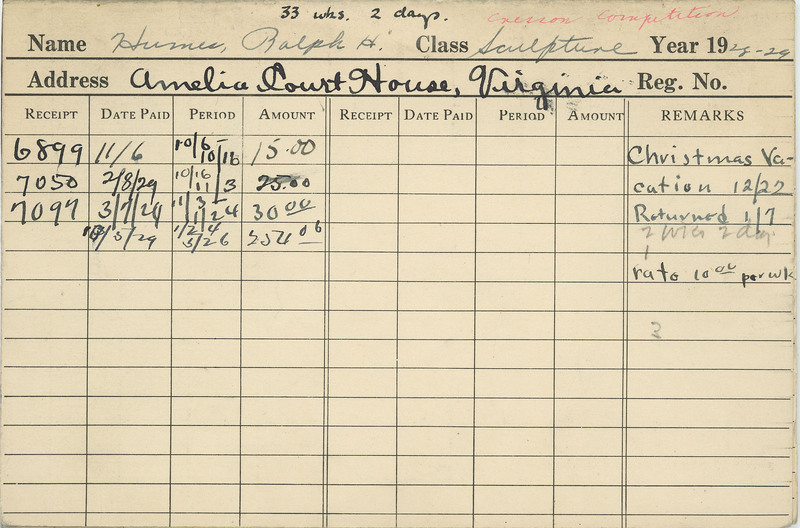 33 wks. 2 days. Cresson Competition
Name Humes, Ralph H. Class Sculpture Year 1928-29
Address Amelia Court House, Virginia Reg. No.
RECEIPT DATE PAID PERIOD AMOUNT RECEIPT DATE PAID PERIOD AMOUNT REMARKS
6899 11/6 10/6 - 10/16 15.00 Christmas Va-
7050 2/8/29 10/16 11/3 25.00 cation 12/22
7097 3/7/29 11/3 - 1/24 30.00 Returned 1/7
/5/29 1/24 5/26 254.06 2 wks 2 days
1
rate 10.00 per wk
3